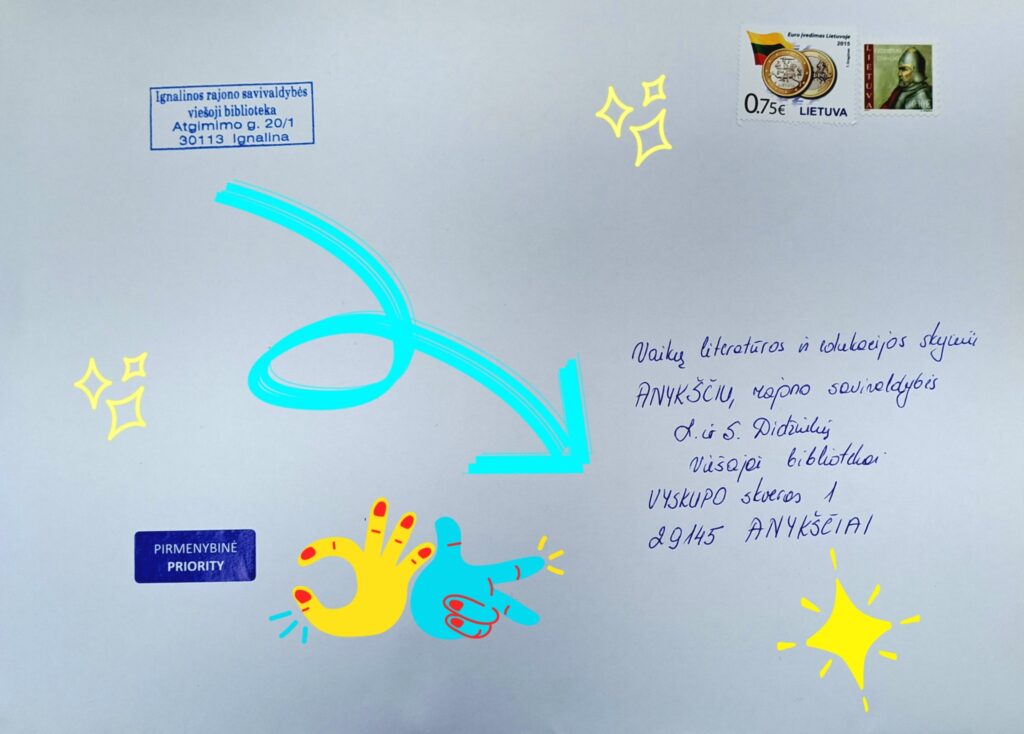 Ignalinos rajono savivaldybės
viešoji biblioteka
Atgimimo g. 20/1
30113 Ignalina
Euro įvedimas Lietuvoje
2015
0.75€ LIETUVA
LIETUVA
Vaikų literatūros ir edukacijos skyriui
ANYKŠČIŲ rajono savivaldybės
L. ir S. Didžiulių
Viešajai bibliotekai
VYSKUPO skveras 1
29145 ANYKŠČIAI
PIRMENYBINĖ
PRIORITY